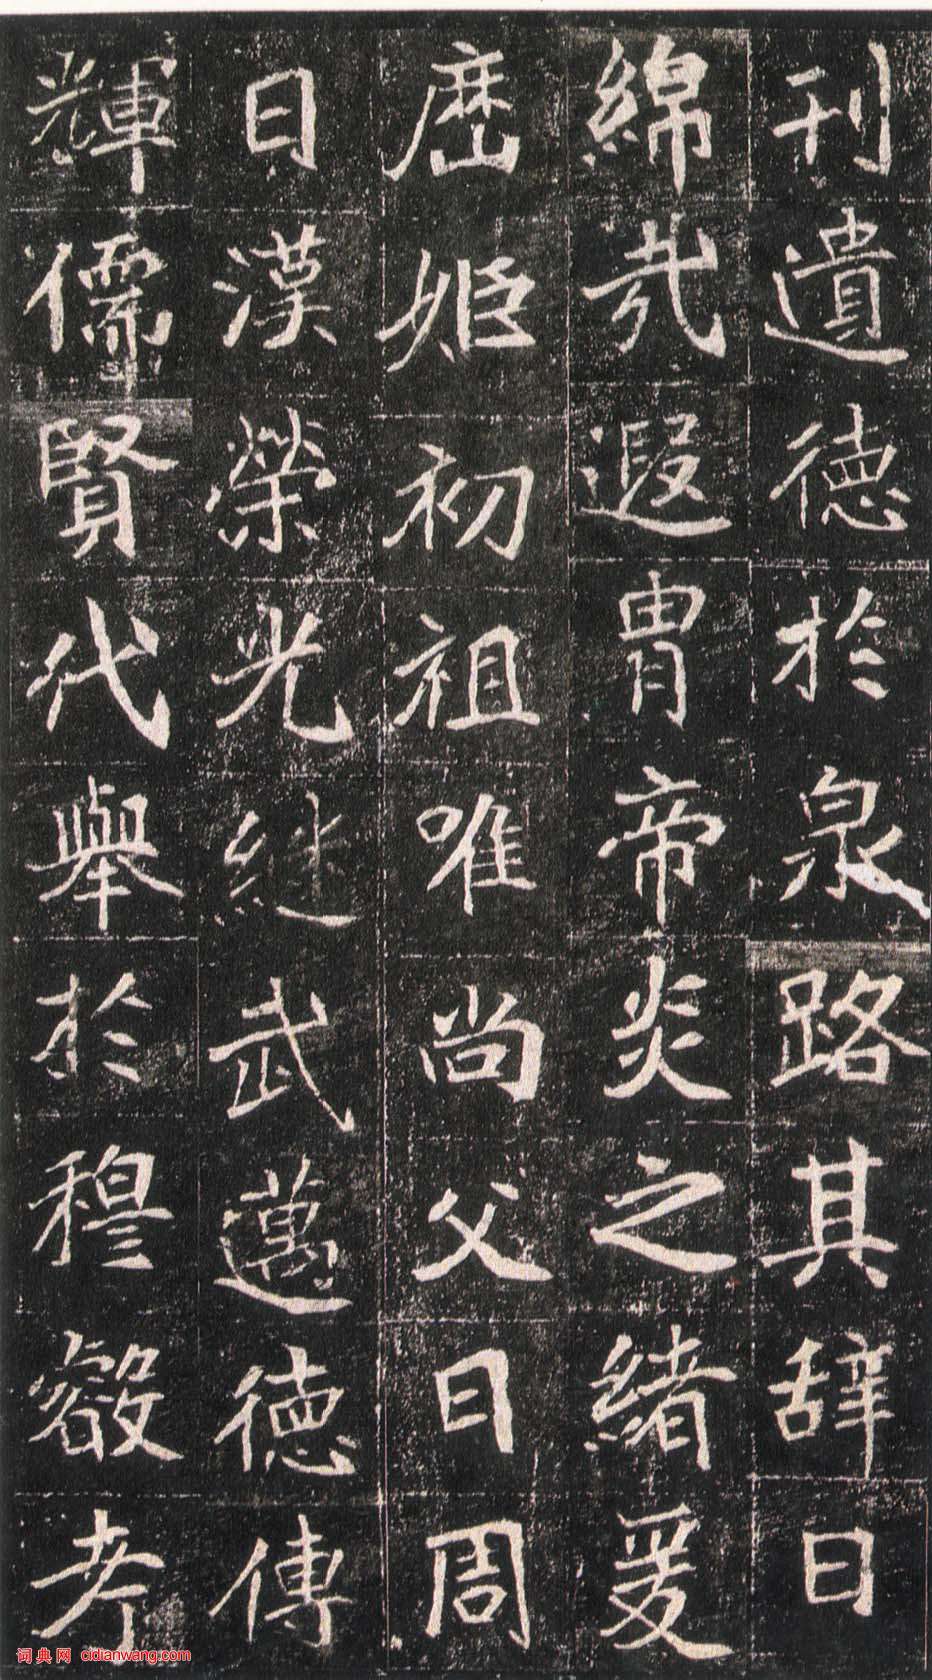 刊遺德於泉路其辞曰
綿哉遐胄帝炎之緒爰
歷姬初祖唯尚父曰周
曰漢榮光継武邁德傳
輝儒賢代舉於穆叡考
词典网 cidianwang.com